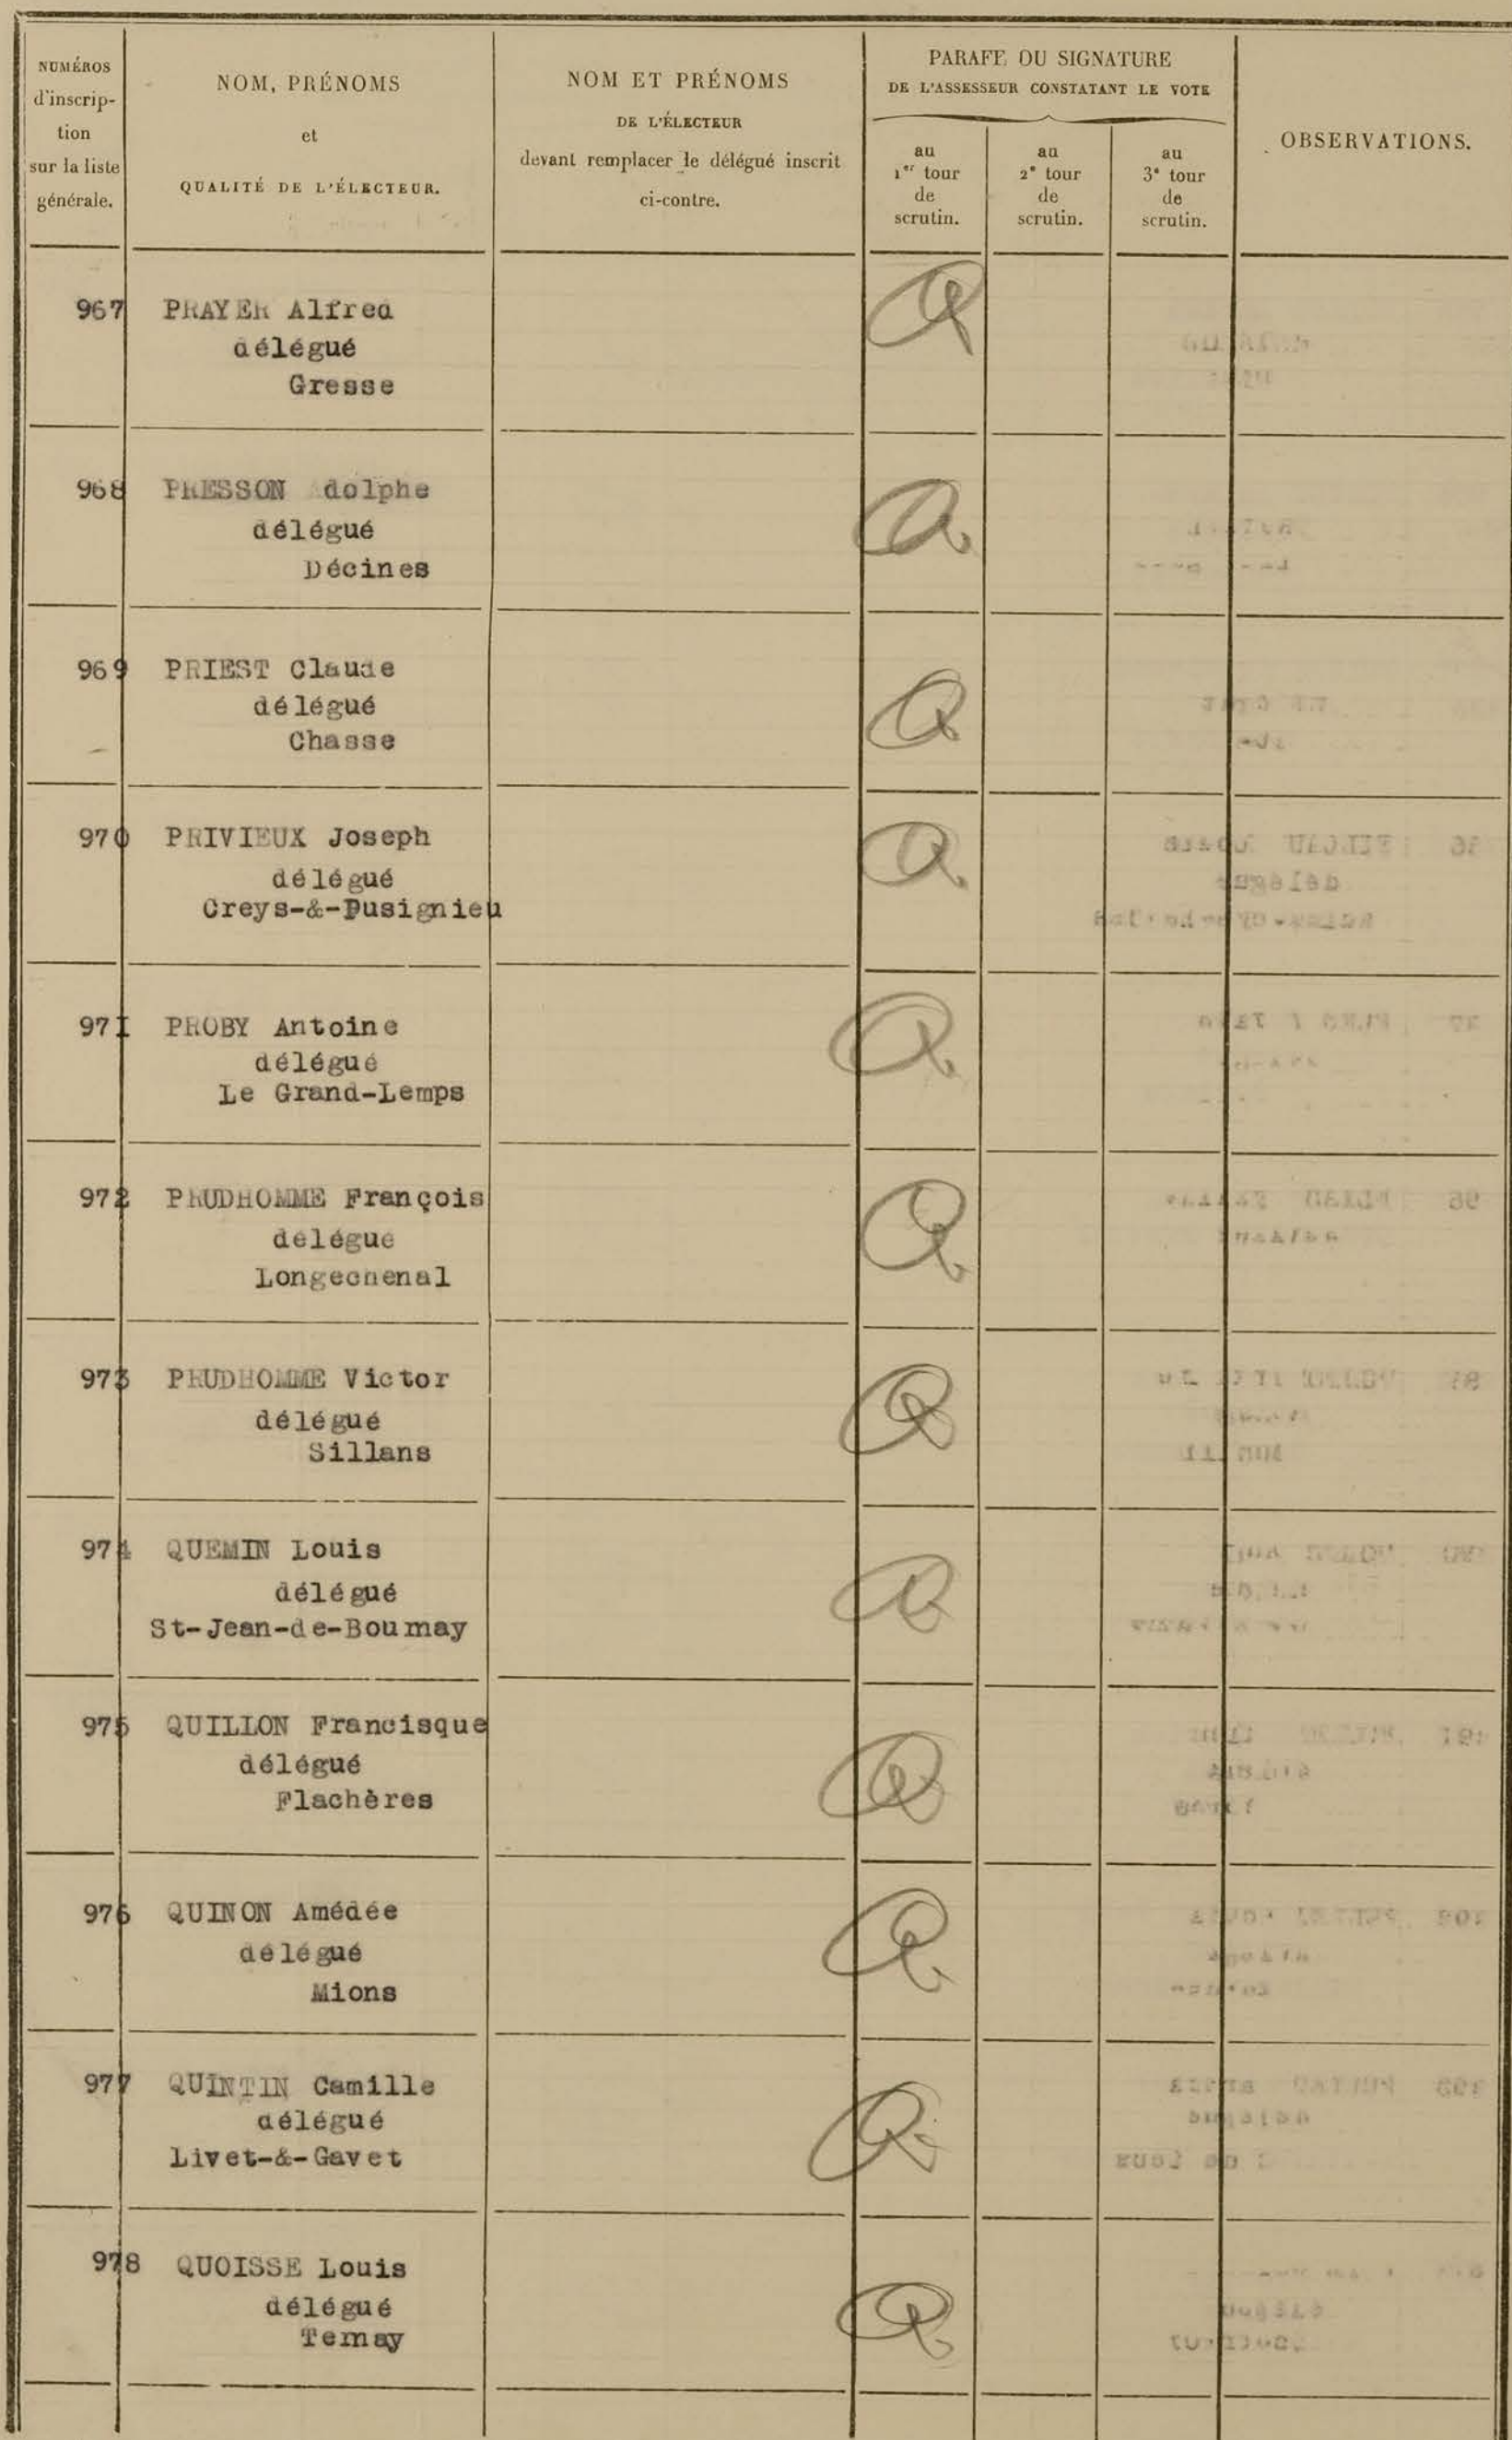 NUMÉROS
d'inscrip-
tion
sur la liste
générale.
NOM, PRÉNOMS
et
QUALITÉ DE L'ÉLECTEUR.
NOM ET PRÉNOMS
DE L'ÉLECTEUR
devant remplacer le délégué inscrit
ci-contre.
PARAFE OU SIGNATURE
DE L'ASSESSEUR CONSTATANT LE VOTE
au
1er tour
de
scrutin.
au
2e tour
de
scrutin.
au
3e tour
de
scrutin.
OBSERVATIONS.
967 PRAYER Alfred
délégué
Gresse
968 PRESSON Adolphe
délégué
Décines
969 PRIEST Claude
délégué
Chasse
970 PRIVIEUX Joseph
délégué
Creys-&-Pusignieu
971 PROBY Antoine
délégué
Le Grand-Lemps
972 PRUDHOMME François
délégué
Longechenal
973 PRUDHOMME Victor
délégué
Sillans
974 QUEMIN Louis
délégué
St-Jean-de-Bournay
975 QUILLON Francisque
délégué
Flachères
976 QUINON Amédée
délégué
Mions
977 QUINTIN Camille
délégué
Livet-&-Gavet
978 QUOISSE Louis
délégué
Ternay